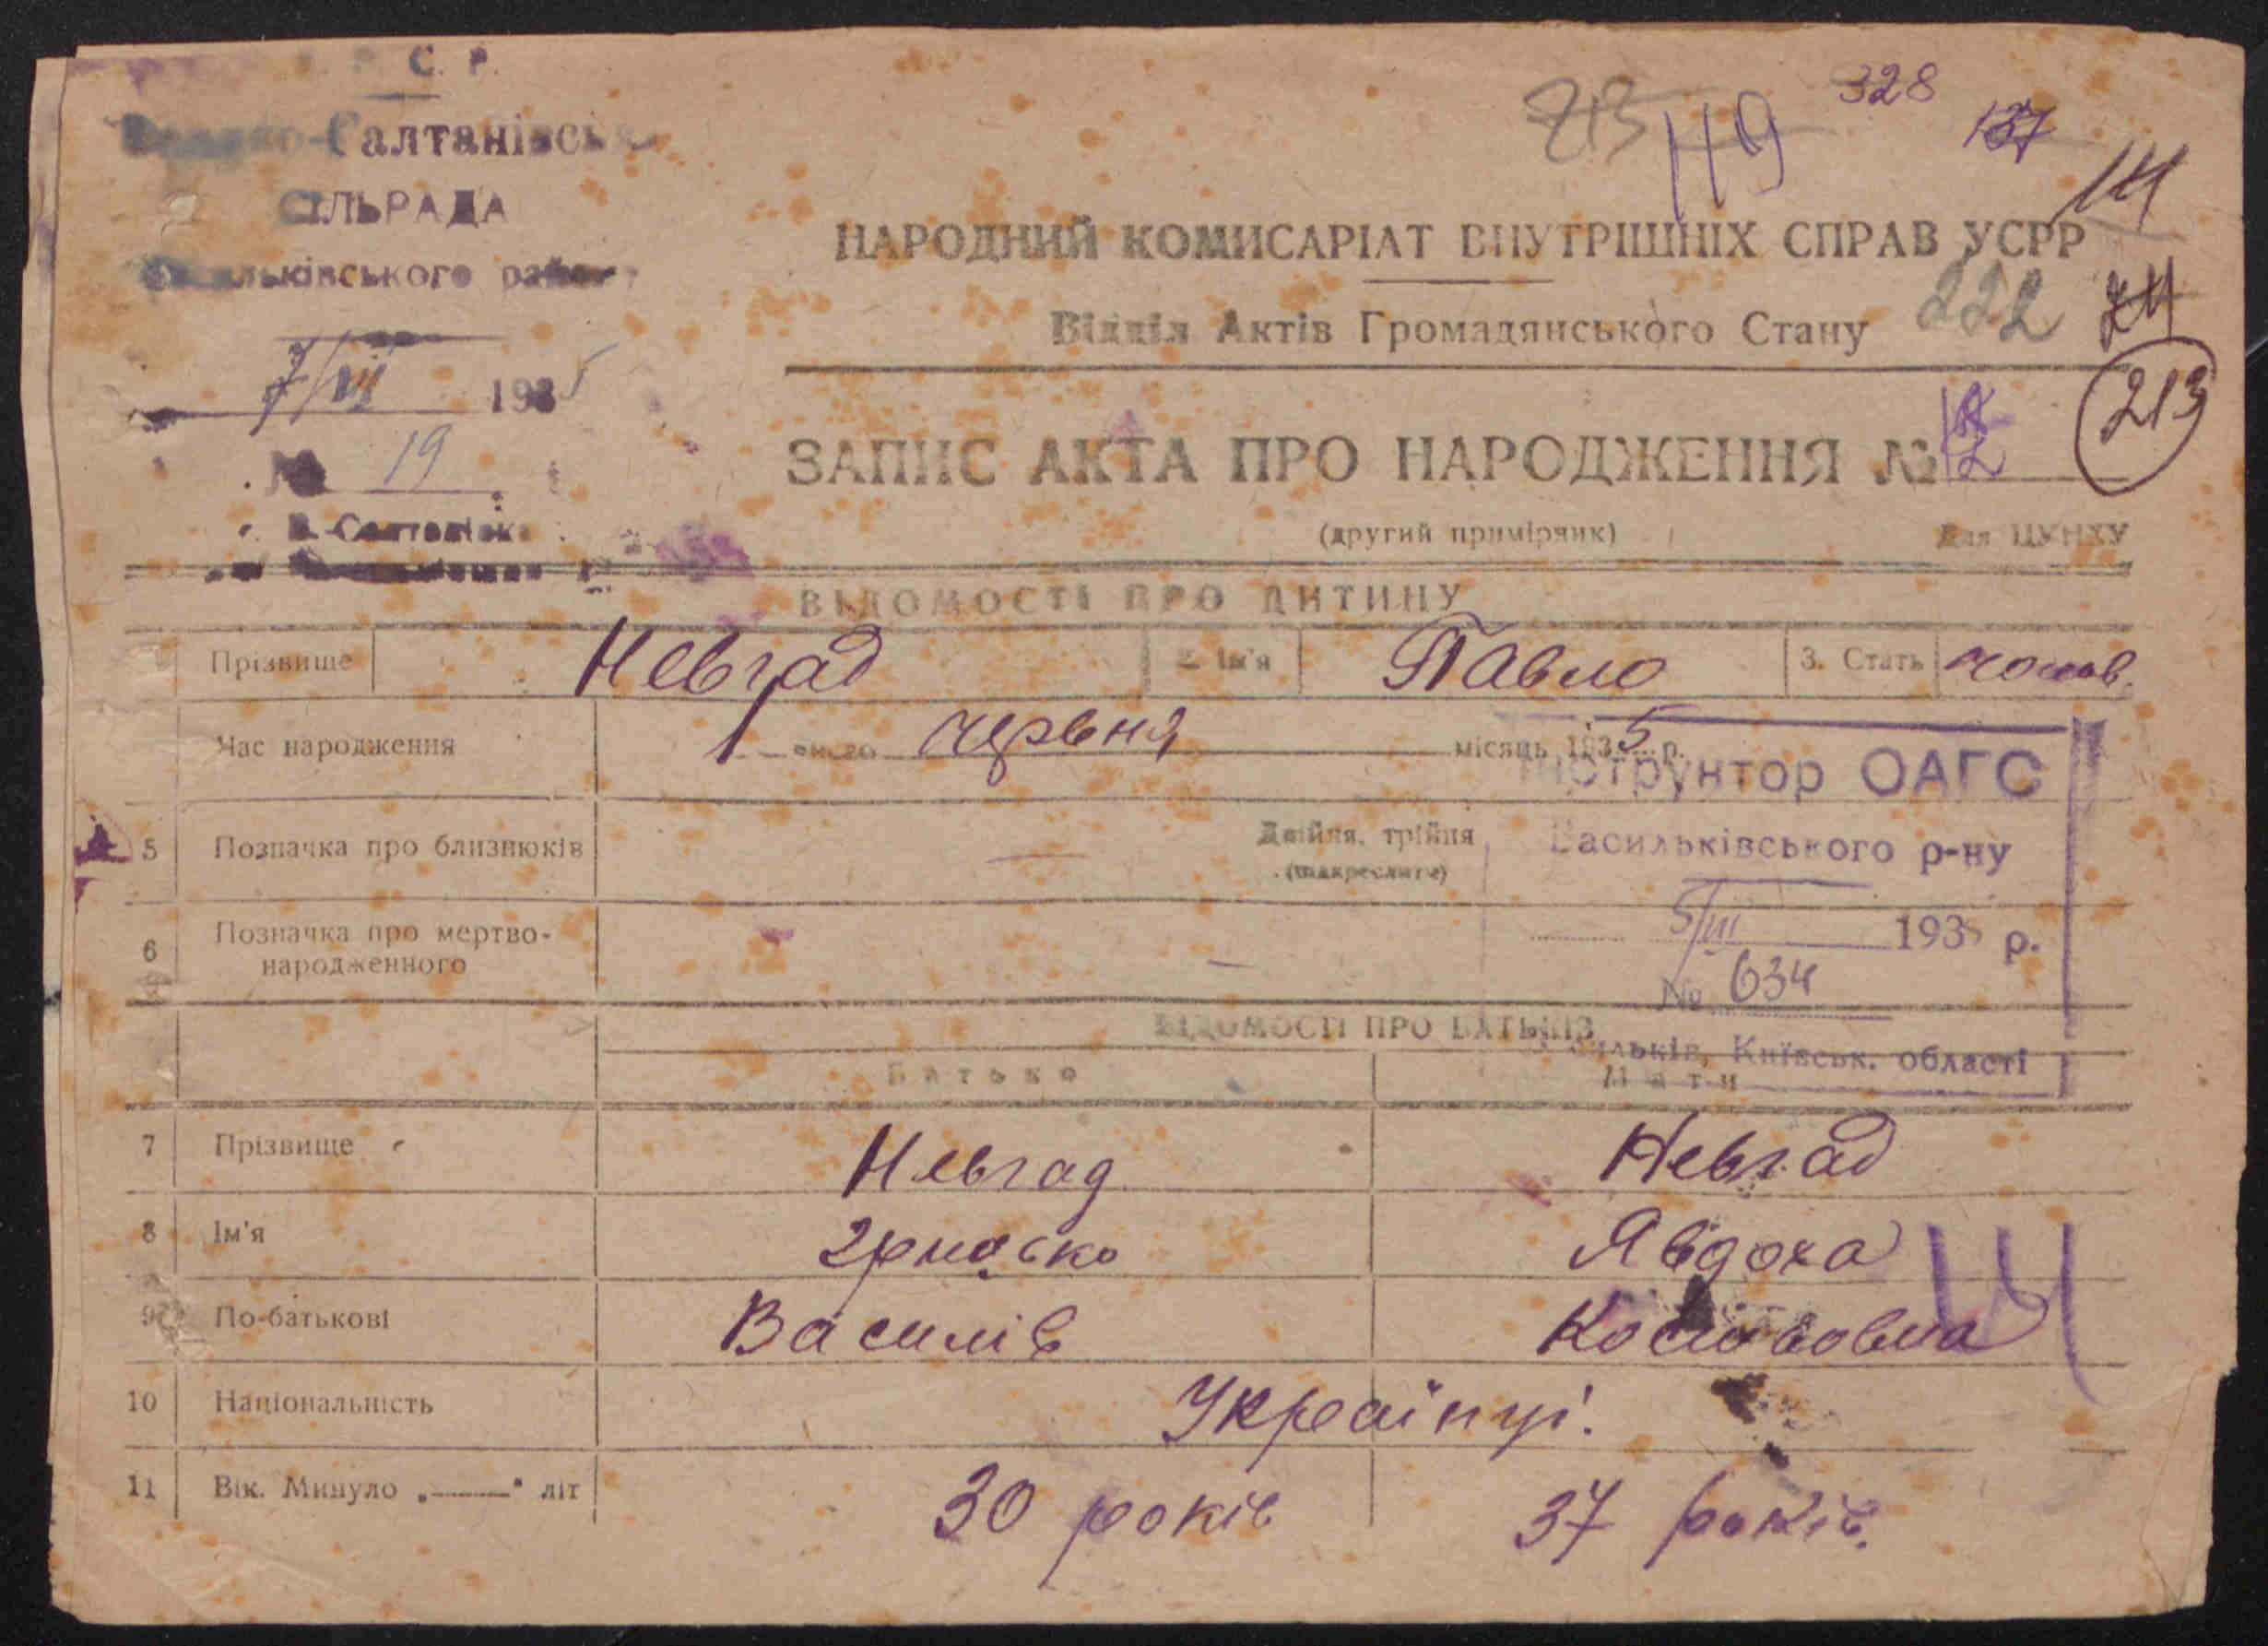 С. Р.
Салтанівськ
СІЛЬРАДА
Васильківського району
7/VII 1935
№ 19
с. В.-Салтанівка
213 119 328 137
141
НАРОДНИЙ КОМІСАРІАТ ВНУТРІШНІХ СПРАВ УСРР
Відділ Актів Громадянського Стану 222 74
213
ЗАПИС АКТА ПРО НАРОДЖЕННЯ № 12
(другий примірник) Для ЦУНХУ
ВІДОМОСТІ ПРО ДИТИНУ
Прізвище Невгад 2. Ім'я Павло 3. Стать чолов.
Час народження 1 — ого червня місяць 1935 р.
Інструктор ОАГС
5 Позначка про близнюків — Двійня, трійня
(підкреслити)
Васильківського р-ну
6 Позначка про мертво-
народженного —
5/VII 1935 р.
№ 634
ВІДОМОСТІ ПРО БАТЬКІВ
Васильків, Київськ. області
Батько Мати
7 Прізвище Невгад Невгад
8 Ім'я Явдоха
9 По-батькові Василів
10 Національність Українці.
11 Вік. Минуло „——“ літ 30 років 37 років.